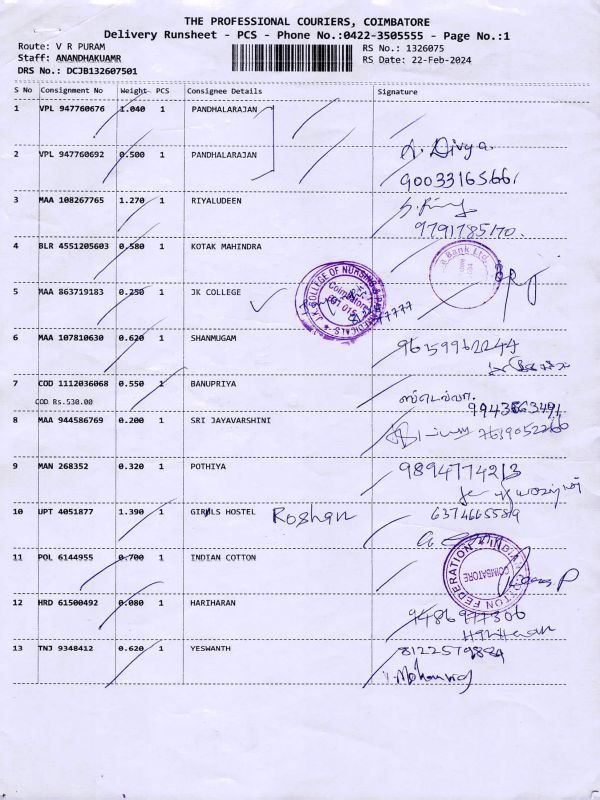 THE PROFESSIONAL COURIERS, COIMBATORE
Delivery Runsheet - PCS - Phone No.:0422-3505555 - Page No.:1
Route: V R PURAM
Staff: ANANDHAKUAMR
DRS No.: DCJB132607501
RS No.: 1326075
RS Date: 22-Feb-2024
S No Consignment No Weight PCS Consignee Details Signature
1 VPL 947760676 1.040 1 PANDHALARAJAN
2 VPL 947760692 0.500 1 PANDHALARAJAN A. Divya.
3 MAA 108267765 1.270 1 RIYALUDEEN
4 BLR 4551205603 0.580 1 KOTAK MAHINDRA
Bank Ltd.
5 MAA 863719183 0.250 1 JK COLLEGE
J.K COLLEGE OF NURSING & PARAMEDICALS
Coimbatore
6 MAA 107810630 0.620 1 SHANMUGAM
7 COD 1112036068 0.550 1 BANUPRIYA
COD Rs.530.00
8 MAA 944586769 0.200 1 SRI JAYAVARSHINI
9 MAN 268352 0.320 1 POTHIYA 9894774213
10 UPT 4051877 1.390 1 GIRLS HOSTEL Roshan 6374665589
11 POL 6144955 0.700 1 INDIAN COTTON
INDIAN COTTON FEDERATION
COIMBATORE
12 HRD 61500492 0.080 1 HARIHARAN 9486977306
13 TNJ 9348412 0.620 1 YESWANTH